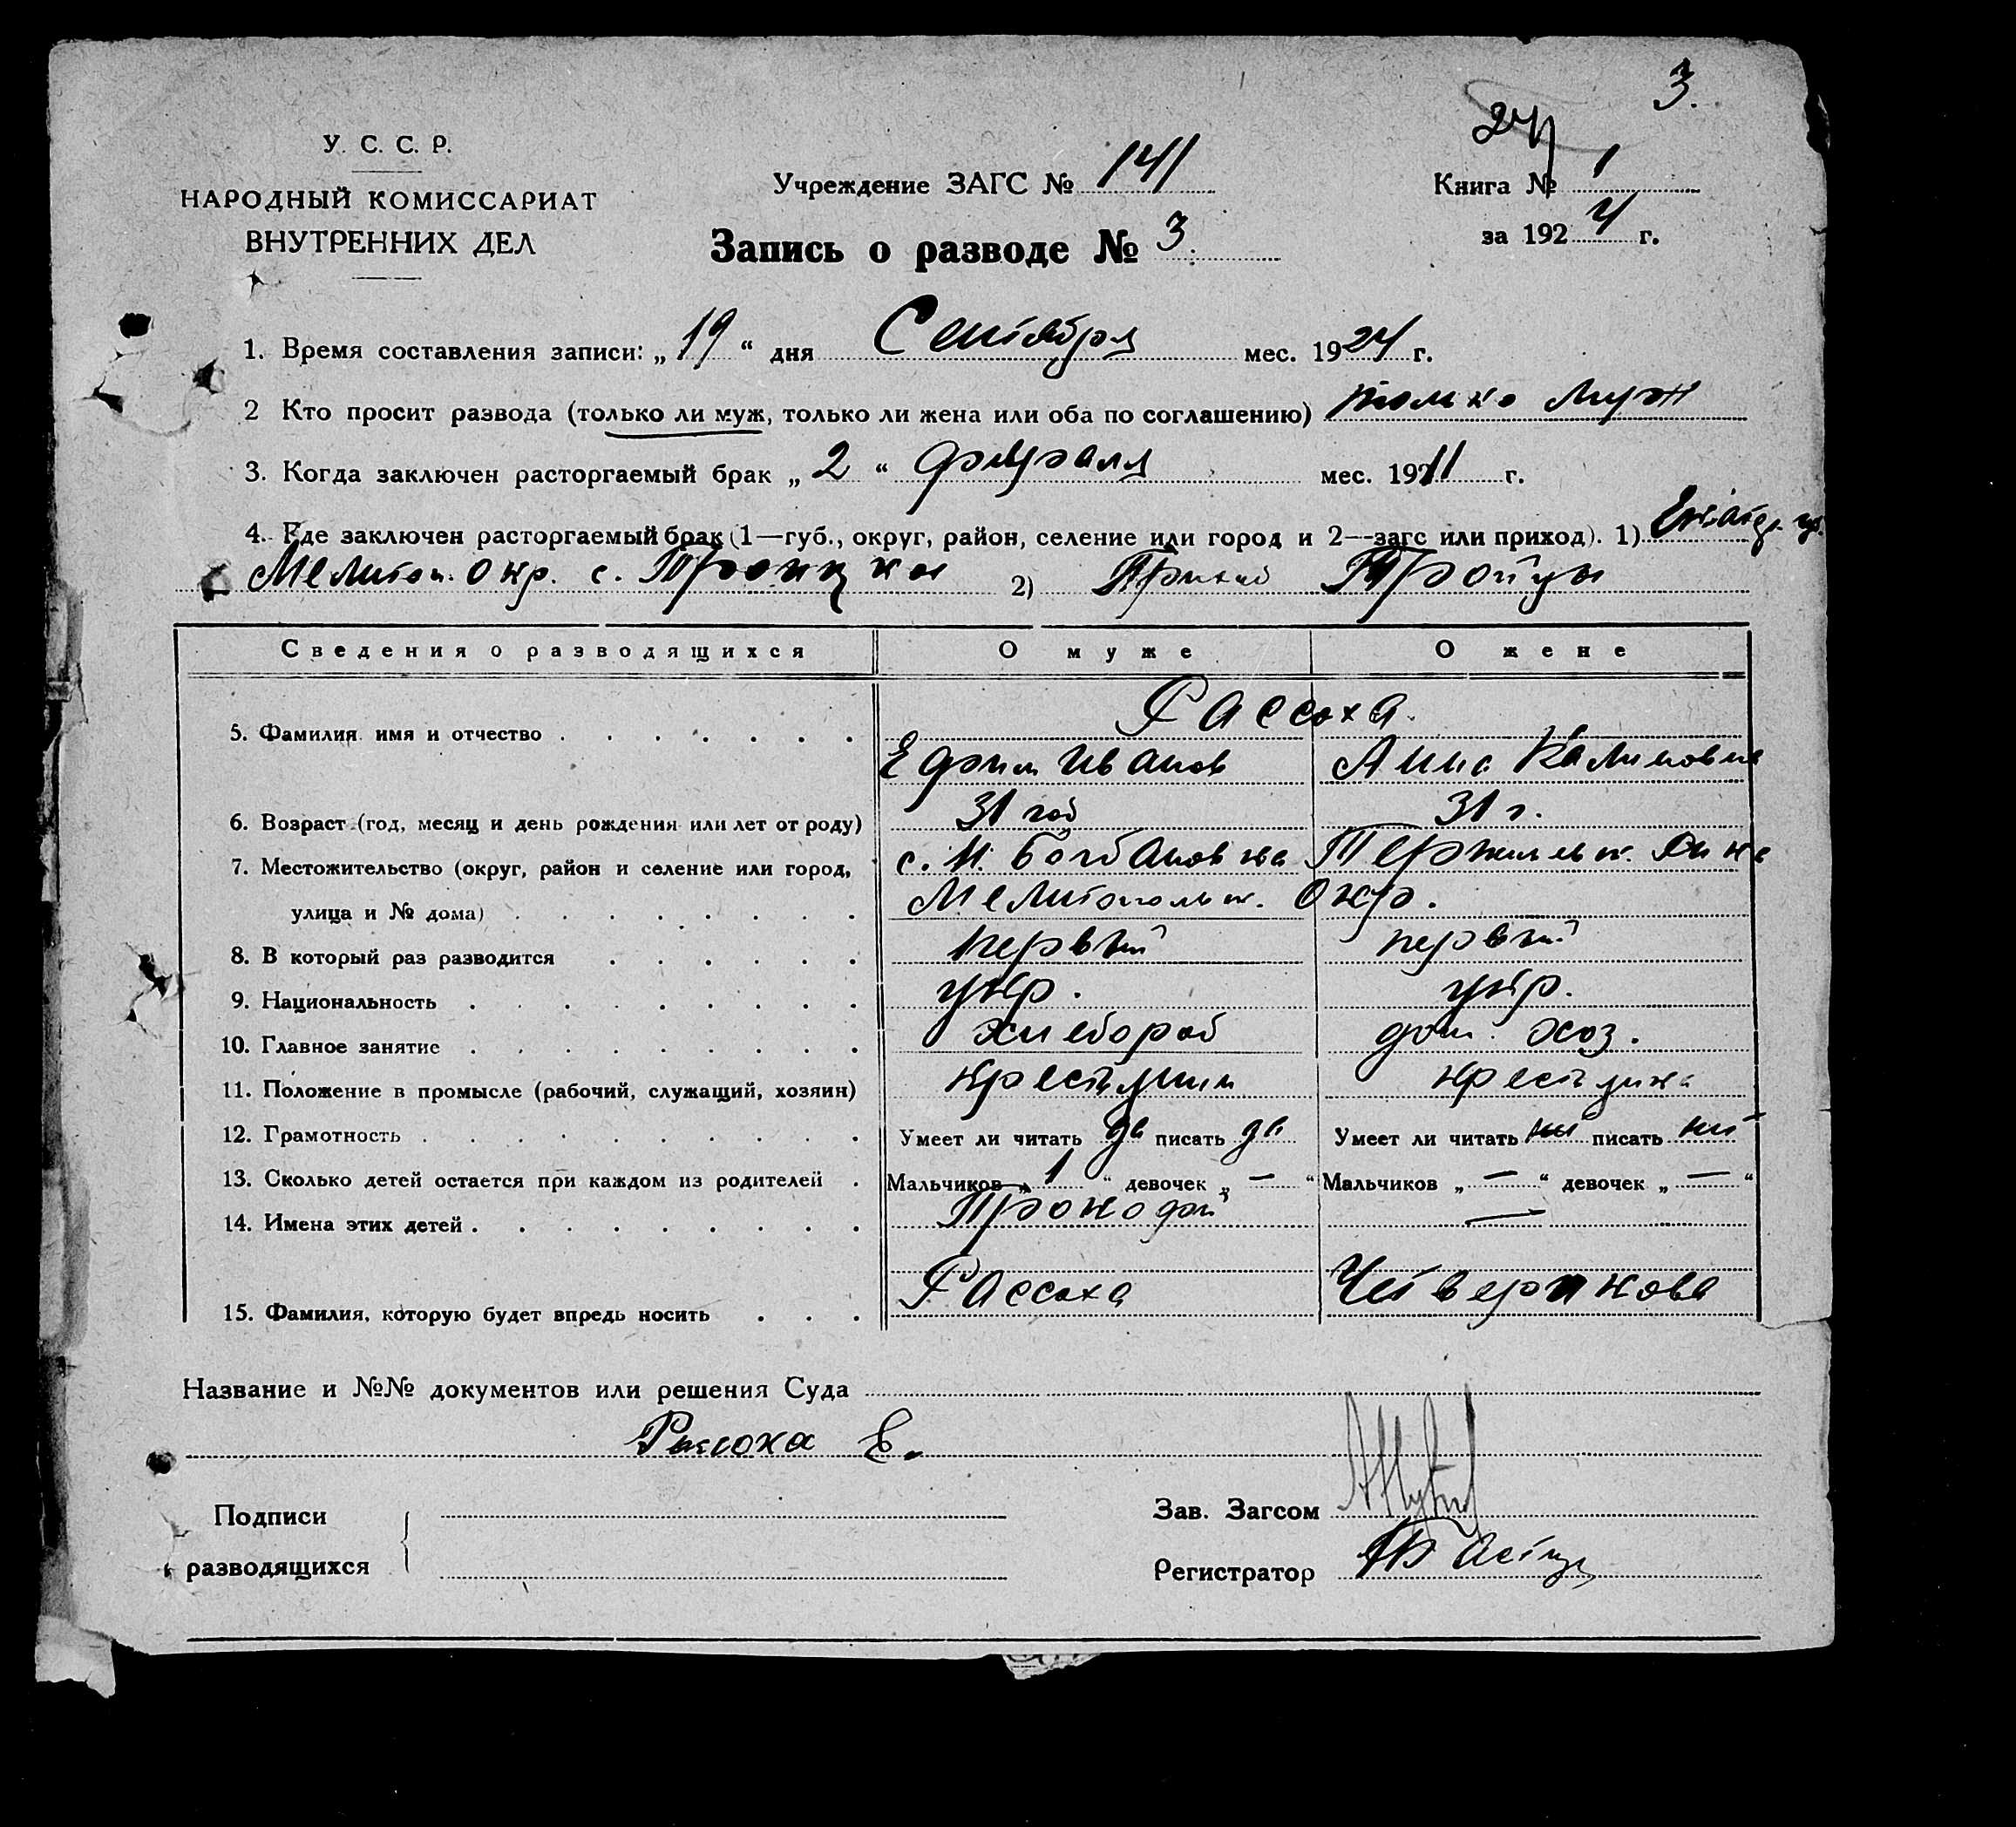 3.
24
У. С. С. Р.
НАРОДНЫЙ КОМИССАРИАТ
ВНУТРЕННИХ ДЕЛ
Учреждение ЗАГС № 141
Книга № 1
за 1924 г.
Запись о разводе № 3.
1. Время составления записи: „19“ дня Сентября мес. 1924 г.
2 Кто просит развода (только ли муж, только ли жена или оба по соглашению) только муж
3. Когда заключен расторгаемый брак „2“ февраля мес. 1911 г.
4. Где заключен расторгаемый брак (1—губ., округ, район, селение или город и 2—загс или приход). 1)
Мелитоп. Окр. с. Троицкое 2) Троицы
Сведения о разводящихся О муже О жене
Рассоха
5. Фамилия имя и отчество
Ефим Иванов Анна Калиновна
6. Возраст (год, месяц и день рождения или лет от роду) 31 год 31 г.
7. Местожительство (округ, район и селение или город, с. Н. Богдановка
улица и № дома) Мелитопольск. Окр.
8. В который раз разводится первый первый
9. Национальность укр. укр.
10. Главное занятие хлебороб дом. хоз.
11. Положение в промысле (рабочий, служащий, хозяин) крестьянин крестьянка
12. Грамотность Умеет ли читать да писать да Умеет ли читать нет писать нет
13. Сколько детей остается при каждом из родителей Мальчиков „1“ девочек „—“ Мальчиков „—“ девочек „—“
14. Имена этих детей —
15. Фамилия, которую будет впредь носить Рассоха Четверикова
Название и №№ документов или решения Суда
Рассоха Е.
Подписи
разводящихся
Зав. Загсом
Регистратор